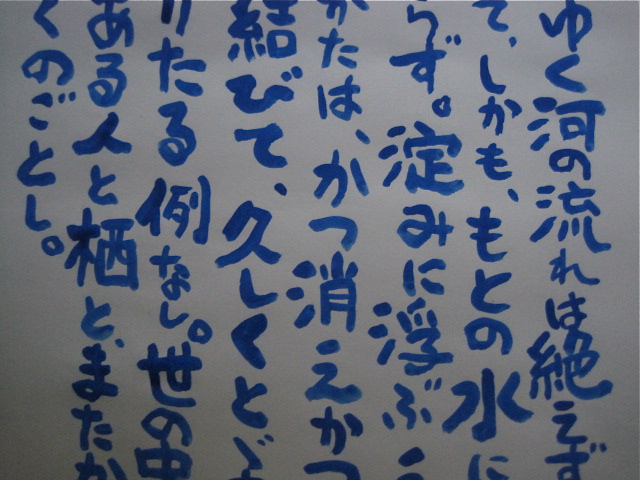 ゆく河の流れは絶えず
て、しかも、もとの水に
らず。淀みに浮ぶう
かたは、かつ消えかつ
結びて、久しくとど
りたる例なし。世の中
ある人と栖と、またか
くのごとし。